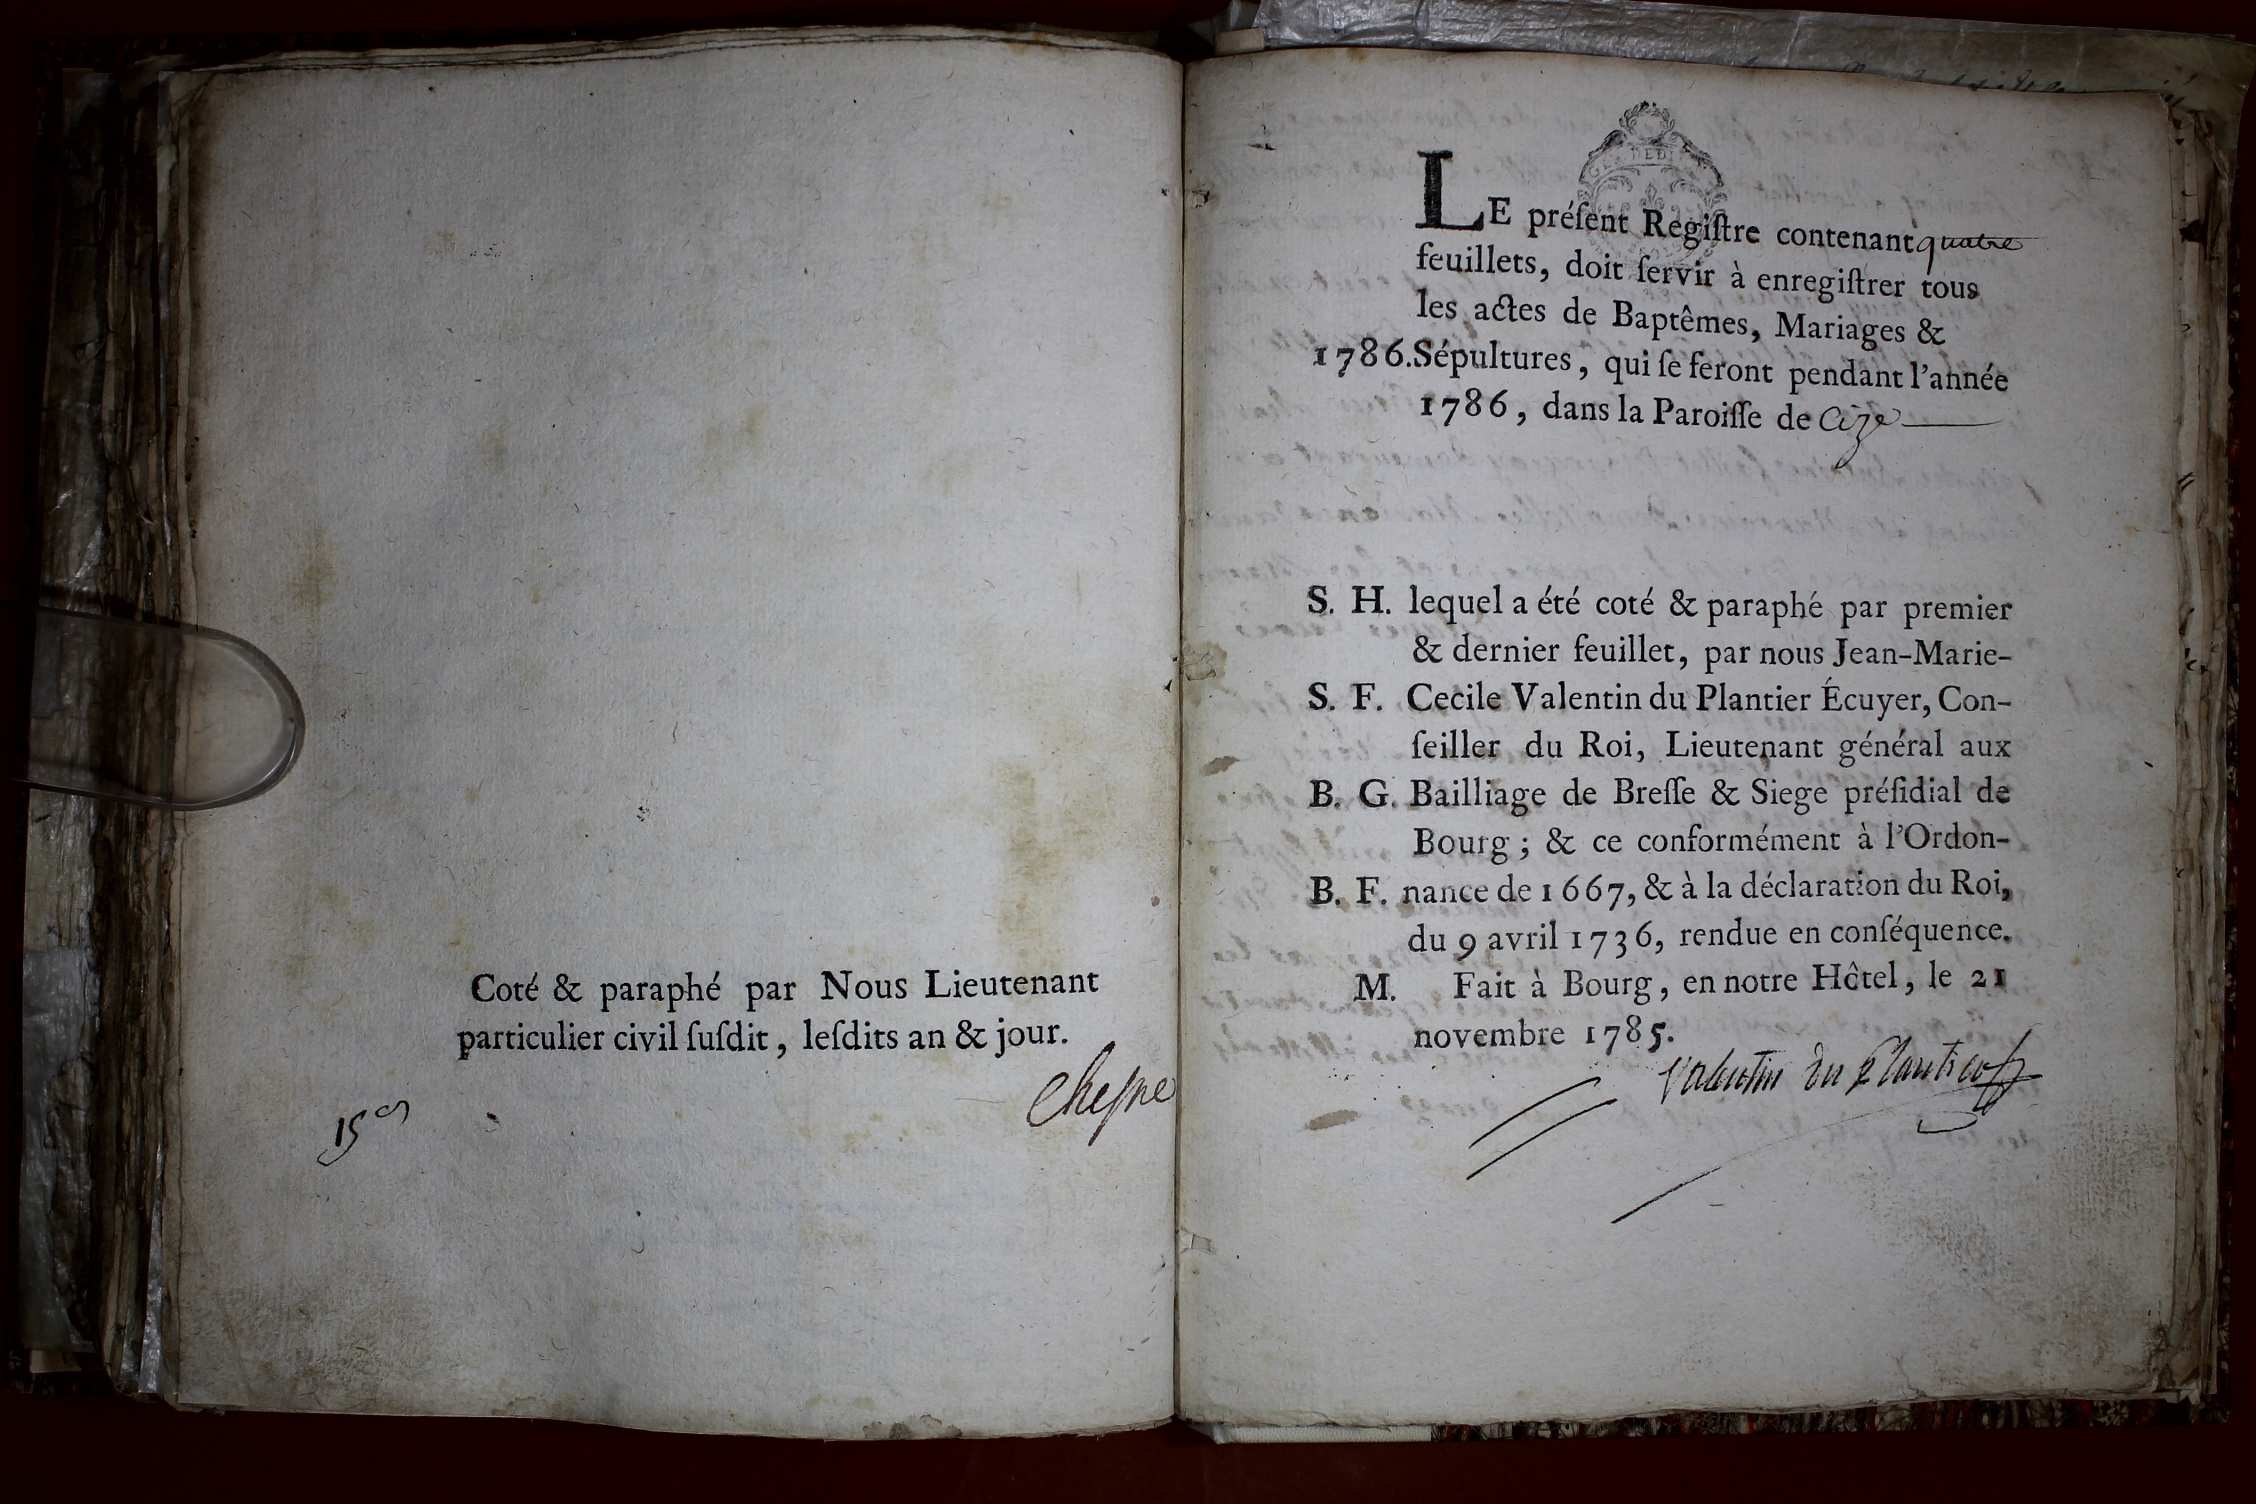 Coté & paraphé par Nous Lieutenant
particulier civil ſuſdit, leſdits an & jour.
Cheſne
LE préſent Regiſtre contenant quatre
feuillets, doit ſervir à enregiſtrer tous
les actes de Baptêmes, Mariages &
1786. Sépultures, qui ſe feront pendant l'année
1786, dans la Paroiſſe de Cize
S. H. lequel a été coté & paraphé par premier
& dernier feuillet, par nous Jean-Marie-
S. F. Cecile Valentin du Plantier Écuyer, Con-
ſeiller du Roi, Lieutenant général aux
B. G. Bailliage de Breſſe & Siege préſidial de
Bourg; & ce conformément à l'Ordon-
B. F. nance de 1667, & à la déclaration du Roi,
du 9 avril 1736, rendue en conſéquence.
M. Fait à Bourg, en notre Hôtel, le 21
novembre 1785.
Valentin du Plantier